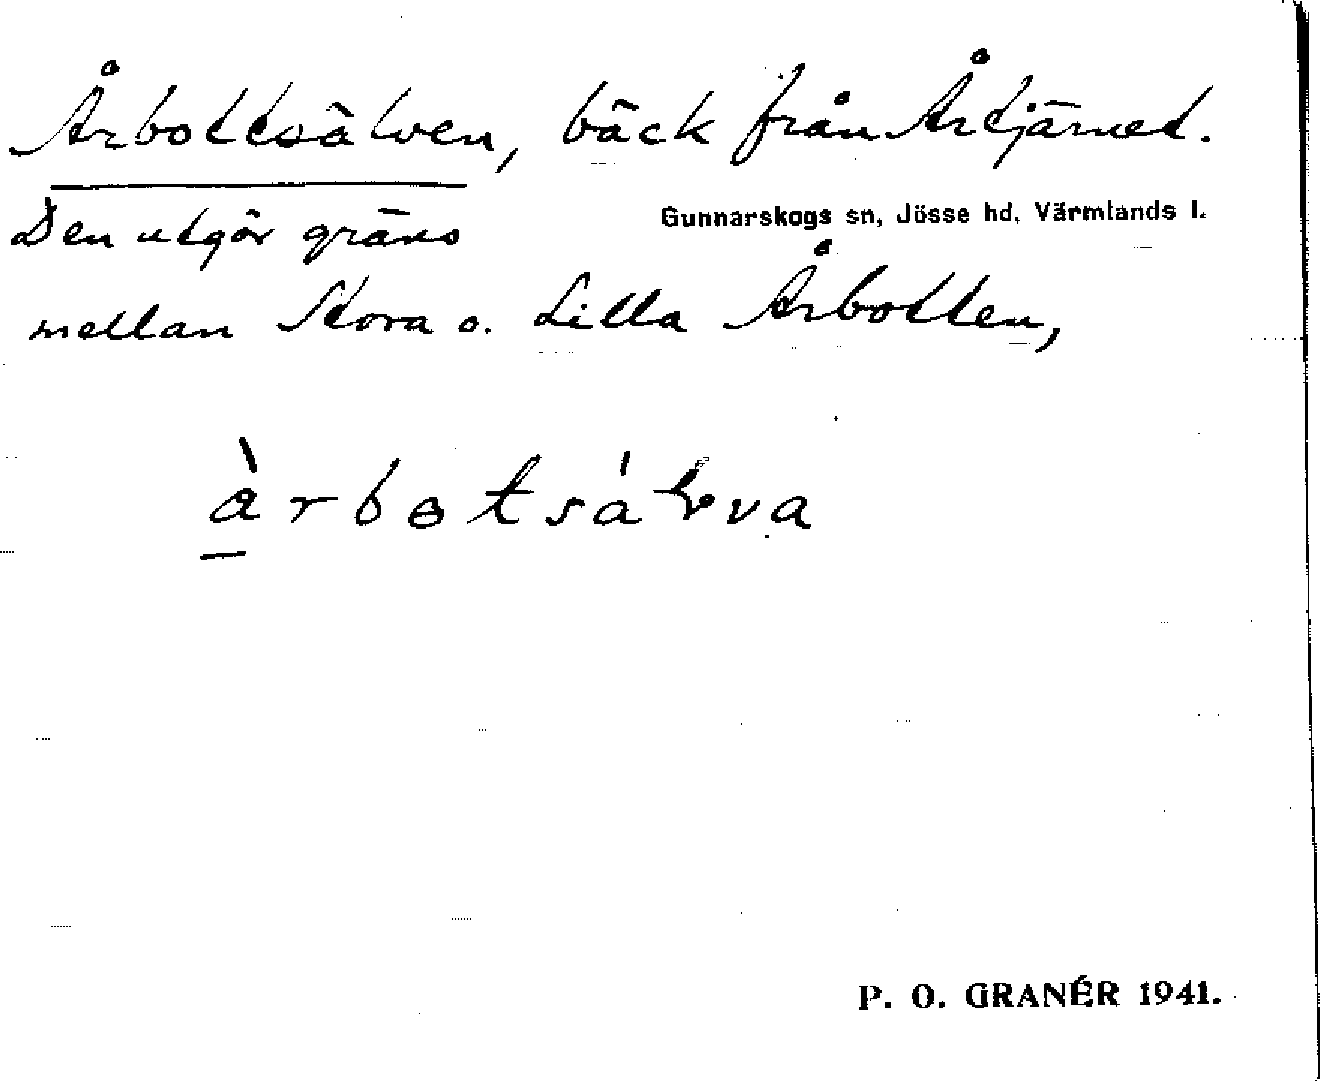 Årbottsälven, bäck från Årtjärnet.
Gunnarskogs sn, Jösse hd, Värmlands l.
Den utgör gräns
mellan Stora o. Lilla Årbotten,
P. O. GRANÉR 1941.